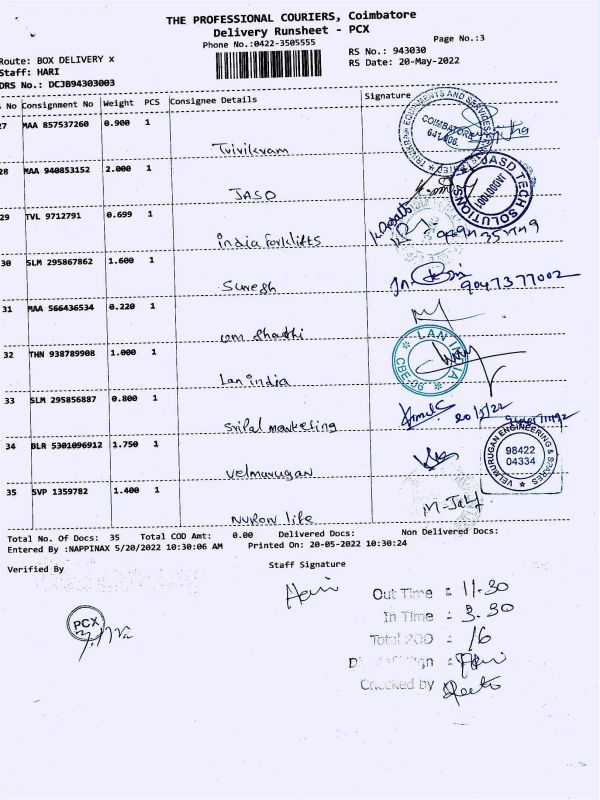 THE PROFESSIONAL COURIERS, Coimbatore
Delivery Runsheet - PCX
Phone No.:0422-3505555
Page No.:3
Route: BOX DELIVERY x
RS No.: 943030
Staff: HARI
RS Date: 20-May-2022
DRS No.: DCJB94303003
S No Consignment No Weight PCS Consignee Details Signature
27 MAA 857537260 0.900 1
Trivikram
COIMBATORE 641006.
28 MAA 940853152 2.000 1
JASO
JASD TECH SOLUTIONS
29 TVL 9712791 0.699 1
india forklifts
30 SLM 295867862 1.600 1
Suresh
9047377002
31 MAA 566436534 0.220 1
om shakthi
32 THN 938789908 1.000 1
Lan india
LAN INDIA CBE-06
33 SLM 295856887 0.800 1
Srilal marketing
20/5/22
34 BLR 5301096912 1.750 1
velmurugan
VELMURUGAN ENGINEERING & SPARES
98422
04334
35 SVP 1359782 1.400 1
NURON life
Total No. Of Docs: 35 Total COD Amt: 0.00 Delivered Docs: Non Delivered Docs:
Entered By :NAPPINAX 5/20/2022 10:30:06 AM Printed On: 20-05-2022 10:30:24
Verified By Staff Signature
Hari
PCX
Out Time : 11.30
In Time : 3.30
Total POD : 16
Checked by